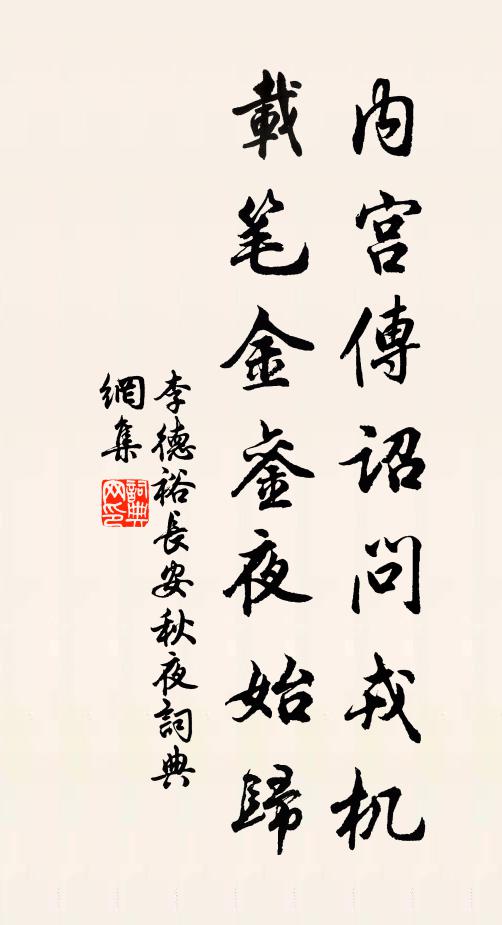 内宫傳诏问戎机
載笔金銮夜始歸
李德裕長安秋夜詞典
網集
詞典
网印